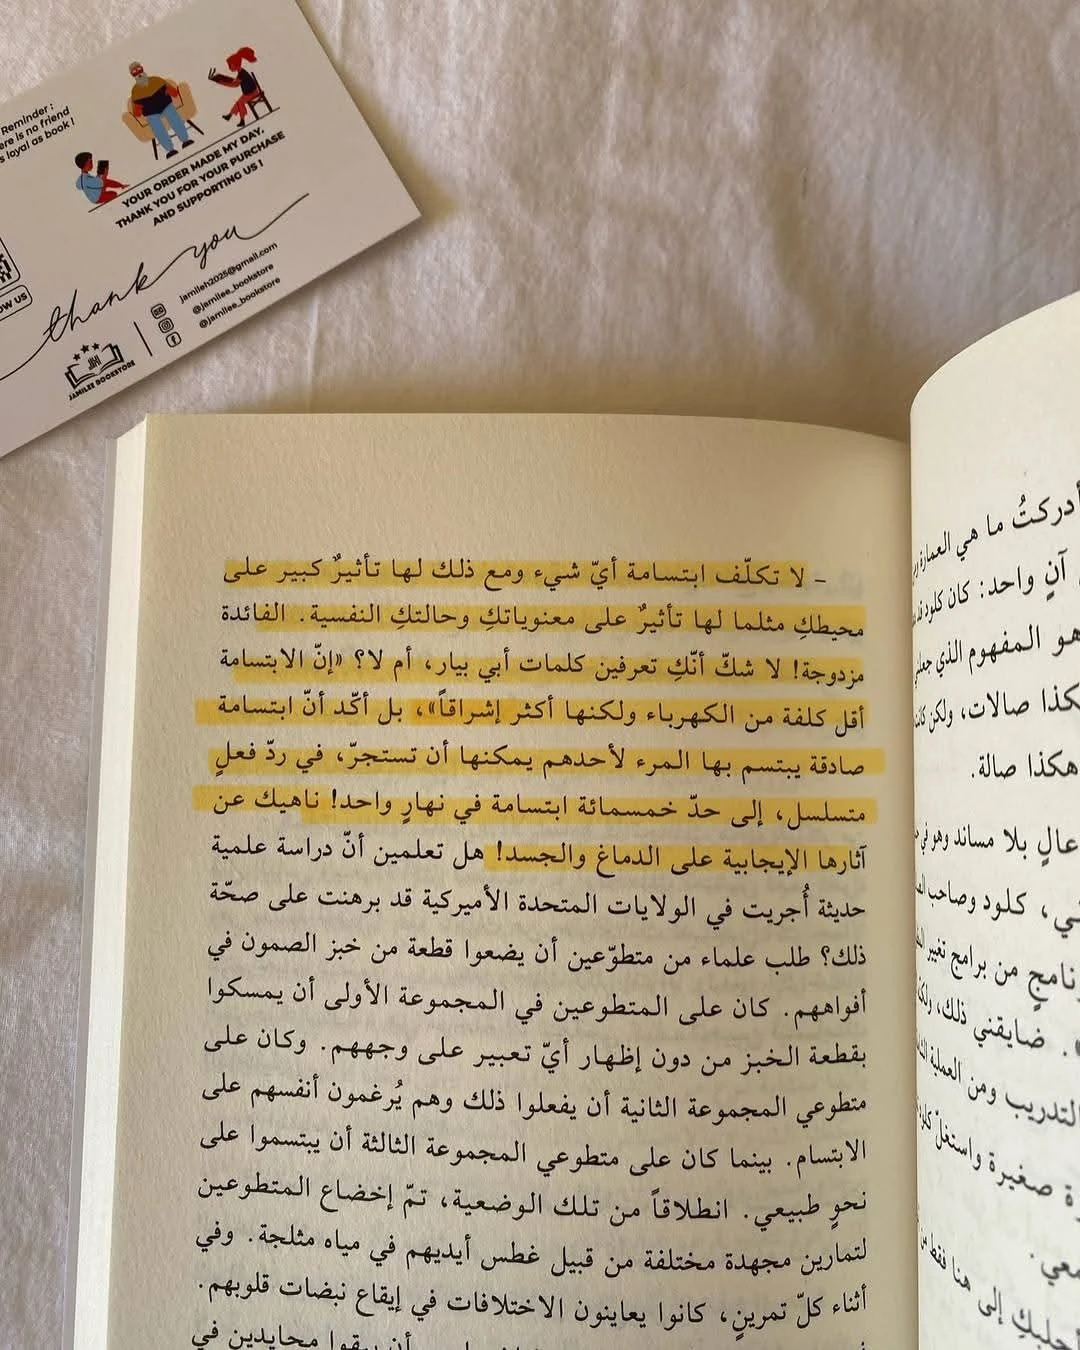 Reminder :
ere is no friend
s loyal as book !
YOUR ORDER MADE MY DAY.
THANK YOU FOR YOUR PURCHASE
AND SUPPORTING US !
thank you
OW US
jamileh2025@gmail.com
@jamilee_bookstore
@jamilee_bookstore
JAMILEE BOOKSTORE
أدركتُ ما هي العمارة
آنٍ واحد: كان كلود
هو المفهوم الذي
هكذا صالات، ولكن
هكذا صالة.
عالٍ بلا مساند وهو في
كلود وصاحب
من برامج تغيير
ضايقني ذلك،
التدريب ومن العملية
صغيرة واستغلّ
إلى هنا فقط
– لا تكلّف ابتسامة أيّ شيء ومع ذلك لها تأثيرٌ كبير على
محيطكِ مثلما لها تأثيرٌ على معنوياتكِ وحالتكِ النفسية. الفائدة
مزدوجة! لا شكّ أنّكِ تعرفين كلمات أبي بيار، أم لا؟ «إنّ الابتسامة
أقل كلفة من الكهرباء ولكنها أكثر إشراقاً»، بل أكّد أنّ ابتسامة
صادقة يبتسم بها المرء لأحدهم يمكنها أن تستجرّ، في ردّ فعلٍ
متسلسل، إلى حدّ خمسمائة ابتسامة في نهارٍ واحد! ناهيك عن
آثارها الإيجابية على الدماغ والجسد! هل تعلمين أنّ دراسة علمية
حديثة أُجريت في الولايات المتحدة الأميركية قد برهنت على صحّة
ذلك؟ طلب علماء من متطوّعين أن يضعوا قطعة من خبز الصمون في
أفواههم. كان على المتطوعين في المجموعة الأولى أن يمسكوا
بقطعة الخبز من دون إظهار أيّ تعبير على وجههم. وكان على
متطوعي المجموعة الثانية أن يفعلوا ذلك وهم يُرغمون أنفسهم على
الابتسام. بينما كان على متطوعي المجموعة الثالثة أن يبتسموا على
نحوٍ طبيعي. انطلاقاً من تلك الوضعية، تمّ إخضاع المتطوعين
لتمارين مجهدة مختلفة من قبيل غطس أيديهم في مياه مثلجة. وفي
أثناء كلّ تمرينٍ، كانوا يعاينون الاختلافات في إيقاع نبضات قلوبهم.
أن يبقوا محايدين في